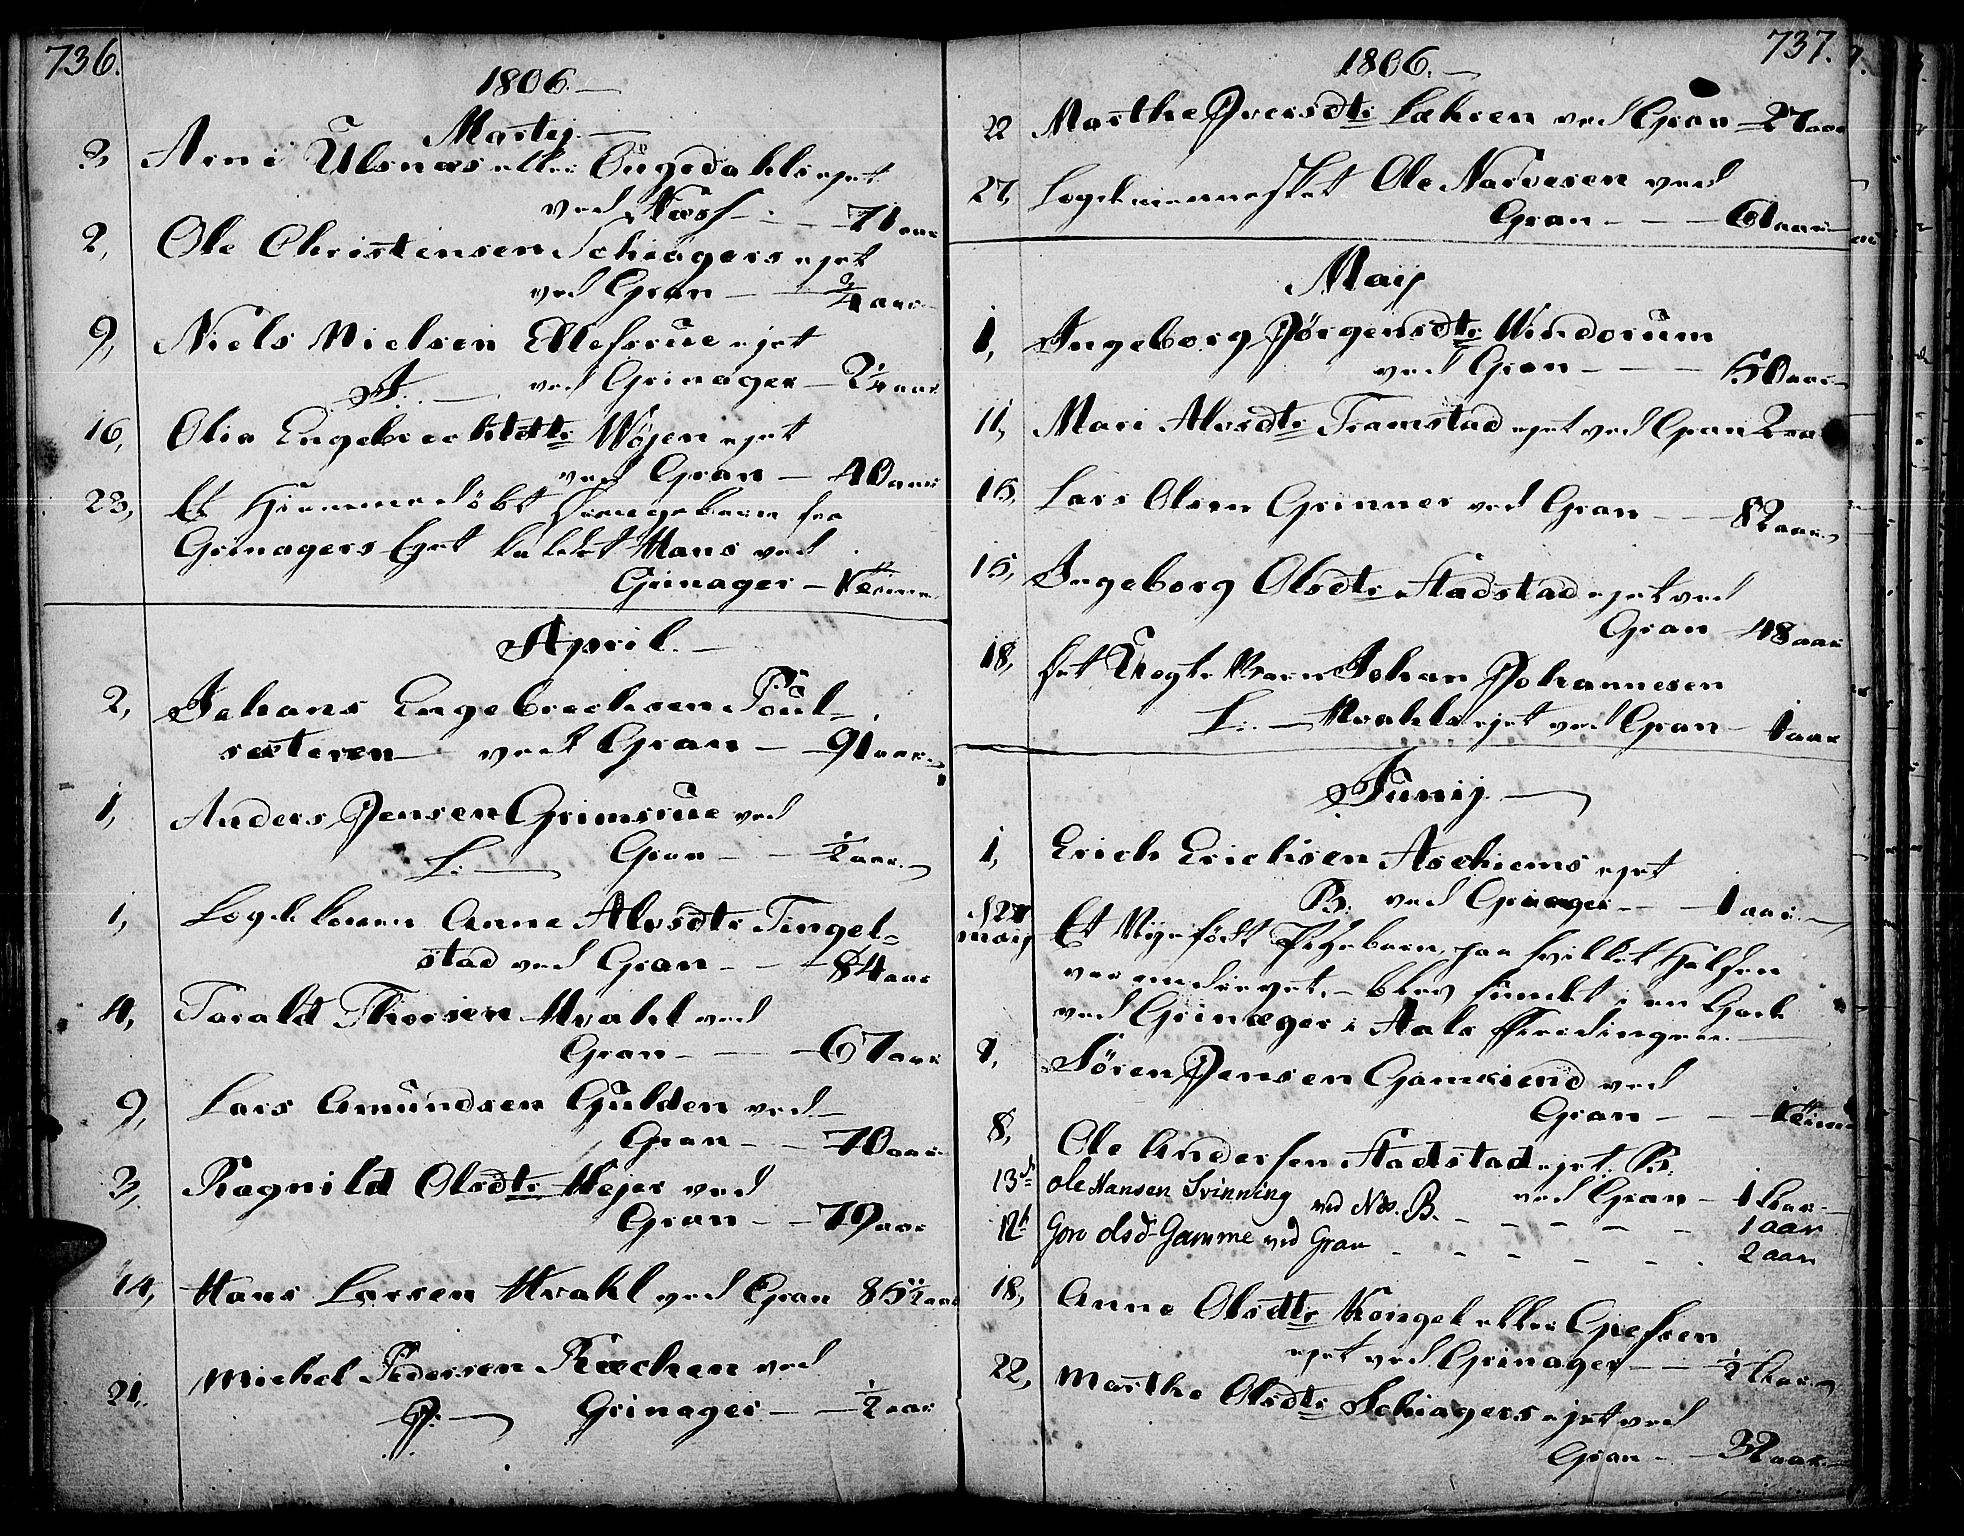 736.
1806.
Martij.
2, Arni Ulsnæs eller Bugedahls ejet
ved Næss - - 71 aar
2, Ole Christensen Schiagers ejet
ved Gran - - 3/4 aar
9, Niels Nielsen Ellefsrue ejet
ved Grinager - 2 1/4 aar
16, Olia Engebrechtdtr Wøjen ejet
ved Gran - 40 aar
23, Et Hiemmedøbt Drengebarn fra
Grinagers Ejet kaldet Hans ved
Grinager - 1 Time
April.
2, Johans Engebrechsen Poul-
sæteren ved Gran - 91 aar
1, Anders Jensen Grimsrue ved
L. Gran - - 1/2 aar
1, Logd konen Anne Alvsdtr Tingel-
stad ved Gran - - 84 aar
4, Tarald Thorsen Hvahl ved
Gran - - 67 aar
9, Lars Amundsen Gulden ved
Gran - - 70 aar
3, Ragnild Olsdtr Mejer ved
Gran - - 79 aar
14, Hans Larsen Hvahl ved Gran 85 1/2 aar
21. Michel Pedersen Ræchen ved
Grinager - - 1/2 aar
737.
1806.
22 Marthe Iversdtr Læhren ved Gran - 27 aar
27, Logdmennesket Ole Narvesen ved
Gran - - - 61 aar
Maij
1, Ingeborg Jørgensdtr Windorum
ved Gran - - - 50 aar
11, Mari Alvsdtr Framstad ejet ved Gran 2 aar
15, Lars Olsen Grinner ved Gran - - 82 aar
15, Ingeborg Olsdtr Stadstad ejet ved
Gran - 48 aar
18, Det Uægte Barn Johan Johannesen
L. - Hvahls ejet ved Gran - 1 aar
Junij.
1, Erich Erichsen Aschiems ejet
B. ved Grinager - - 1 aar
maij Et Nye født Pigebarn, paa hvilket Halsen
var omdrejet, - blev fundet i en Hoel
ved Grinager i Aals Fierdingen.
1, Søren Jensen Gamkiend ved
Gran - - 1 Time
8, Ole Andersen Stadstad ejet B.
ved Gran - 1 Aar
13 Ole Hansen Svinning ved Næs. B. - - - - 1 aar
12 Goro olsd Gamme ved Gran - - - - - 2 aar
18, Anne Olsdtr Kongel eller Gjefsen
ejet ved Grinager - - 1/2 Aar
22, Marthe Olsdtr Schiagers ejet ved
Gran - - 32 aar